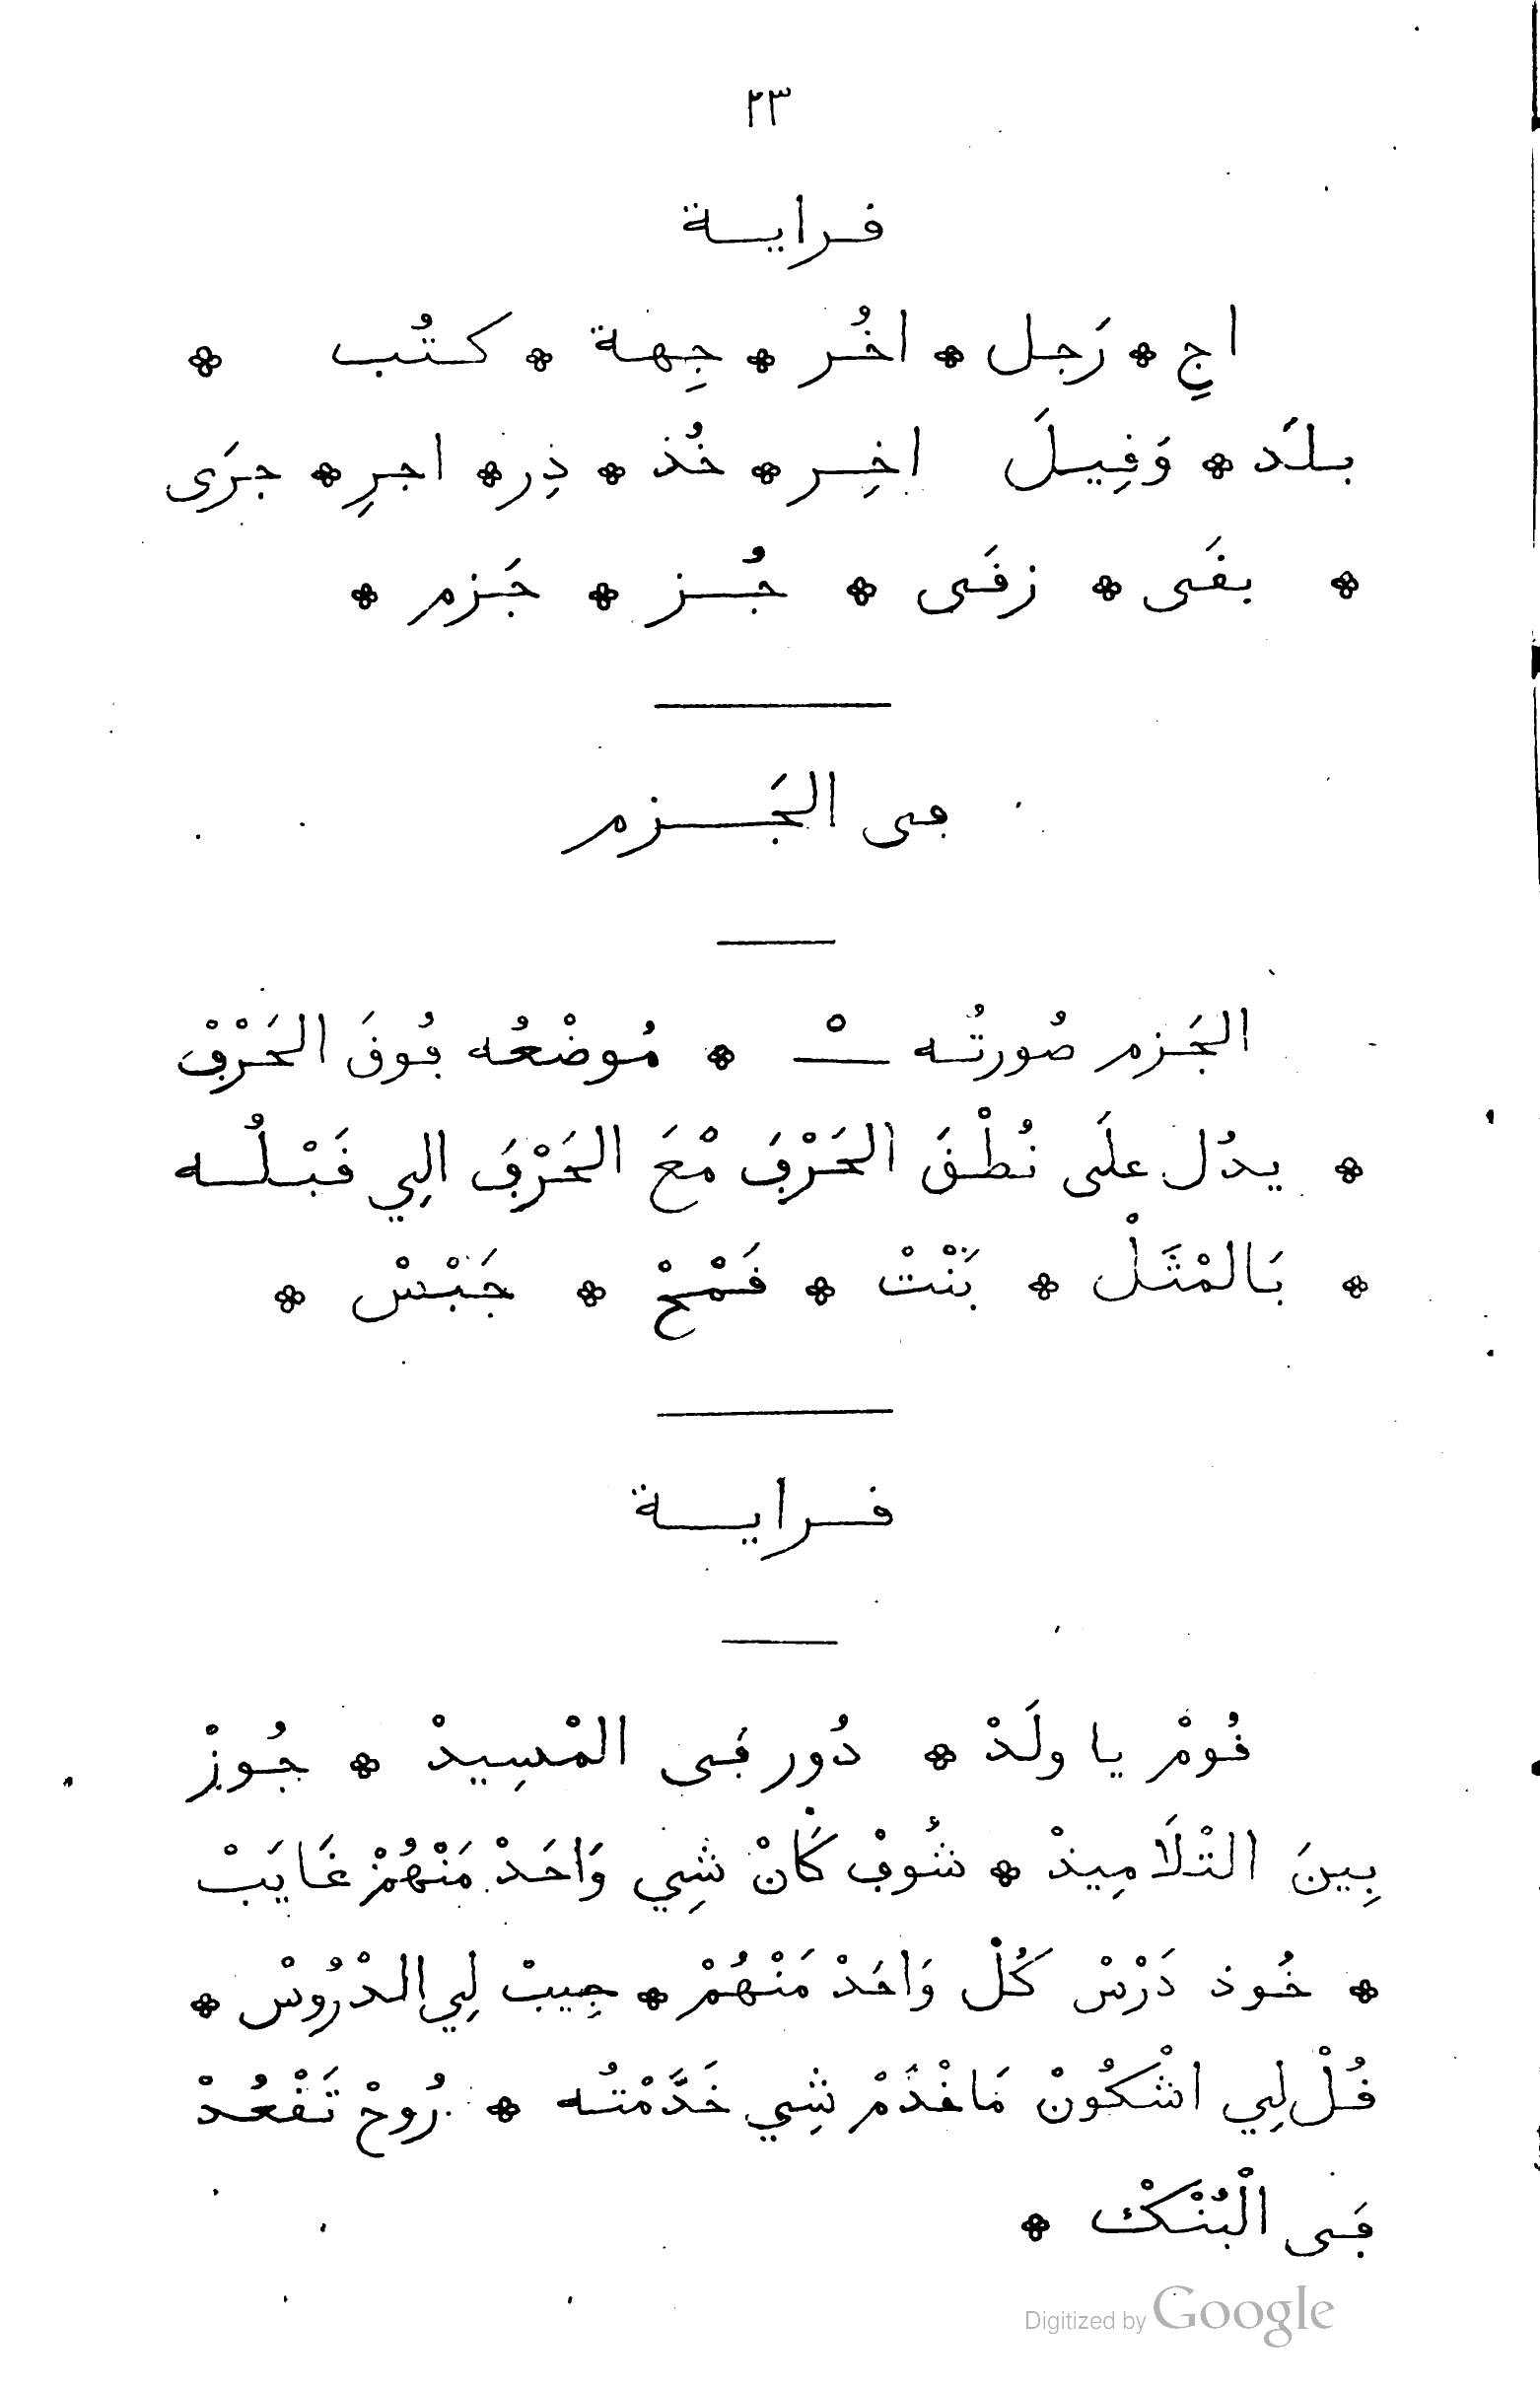 ٢٣
قراية
اجِ * رَجل * اخُر * جِهة * كتُب *
بلَد * وَقِيلَ اخِر * خُذ * ذِر * اجرِ * جرَى
* بقَى * زقَى * جُز * جَزم *
فى الجَزم
الجَزم صُورتُه ـْ * مُوضْعُه فُوقَ الحَرْفْ
* يدُل علَى نُطْقَ الحَرْفَ مْعَ الحَرْفَ الِي قَبْلُه
* بَالمْثَلْ * بَنْتْ * قَمْحْ * جَبْسْ *
قراية
قُومْ يا ولَدْ * دُور فَى المْسِيدْ * جُوزْ
بِينَ التْلَامِيذْ * شُوفْ كَانْ شِي وَاحَدْ مَنْهُمْ غَايَبْ
* خُوذ دَرْسْ كُلْ وَاحَدْ مَنْهُمْ * جِيبْ لِي الدْرُوسْ *
قُلْ لِي اشْكُونْ مَا خْدَمْ شِي خَدَّمْتُه * رُوحْ تَقْعُدْ
فَى الْبُنْكْ *
Digitized by Google